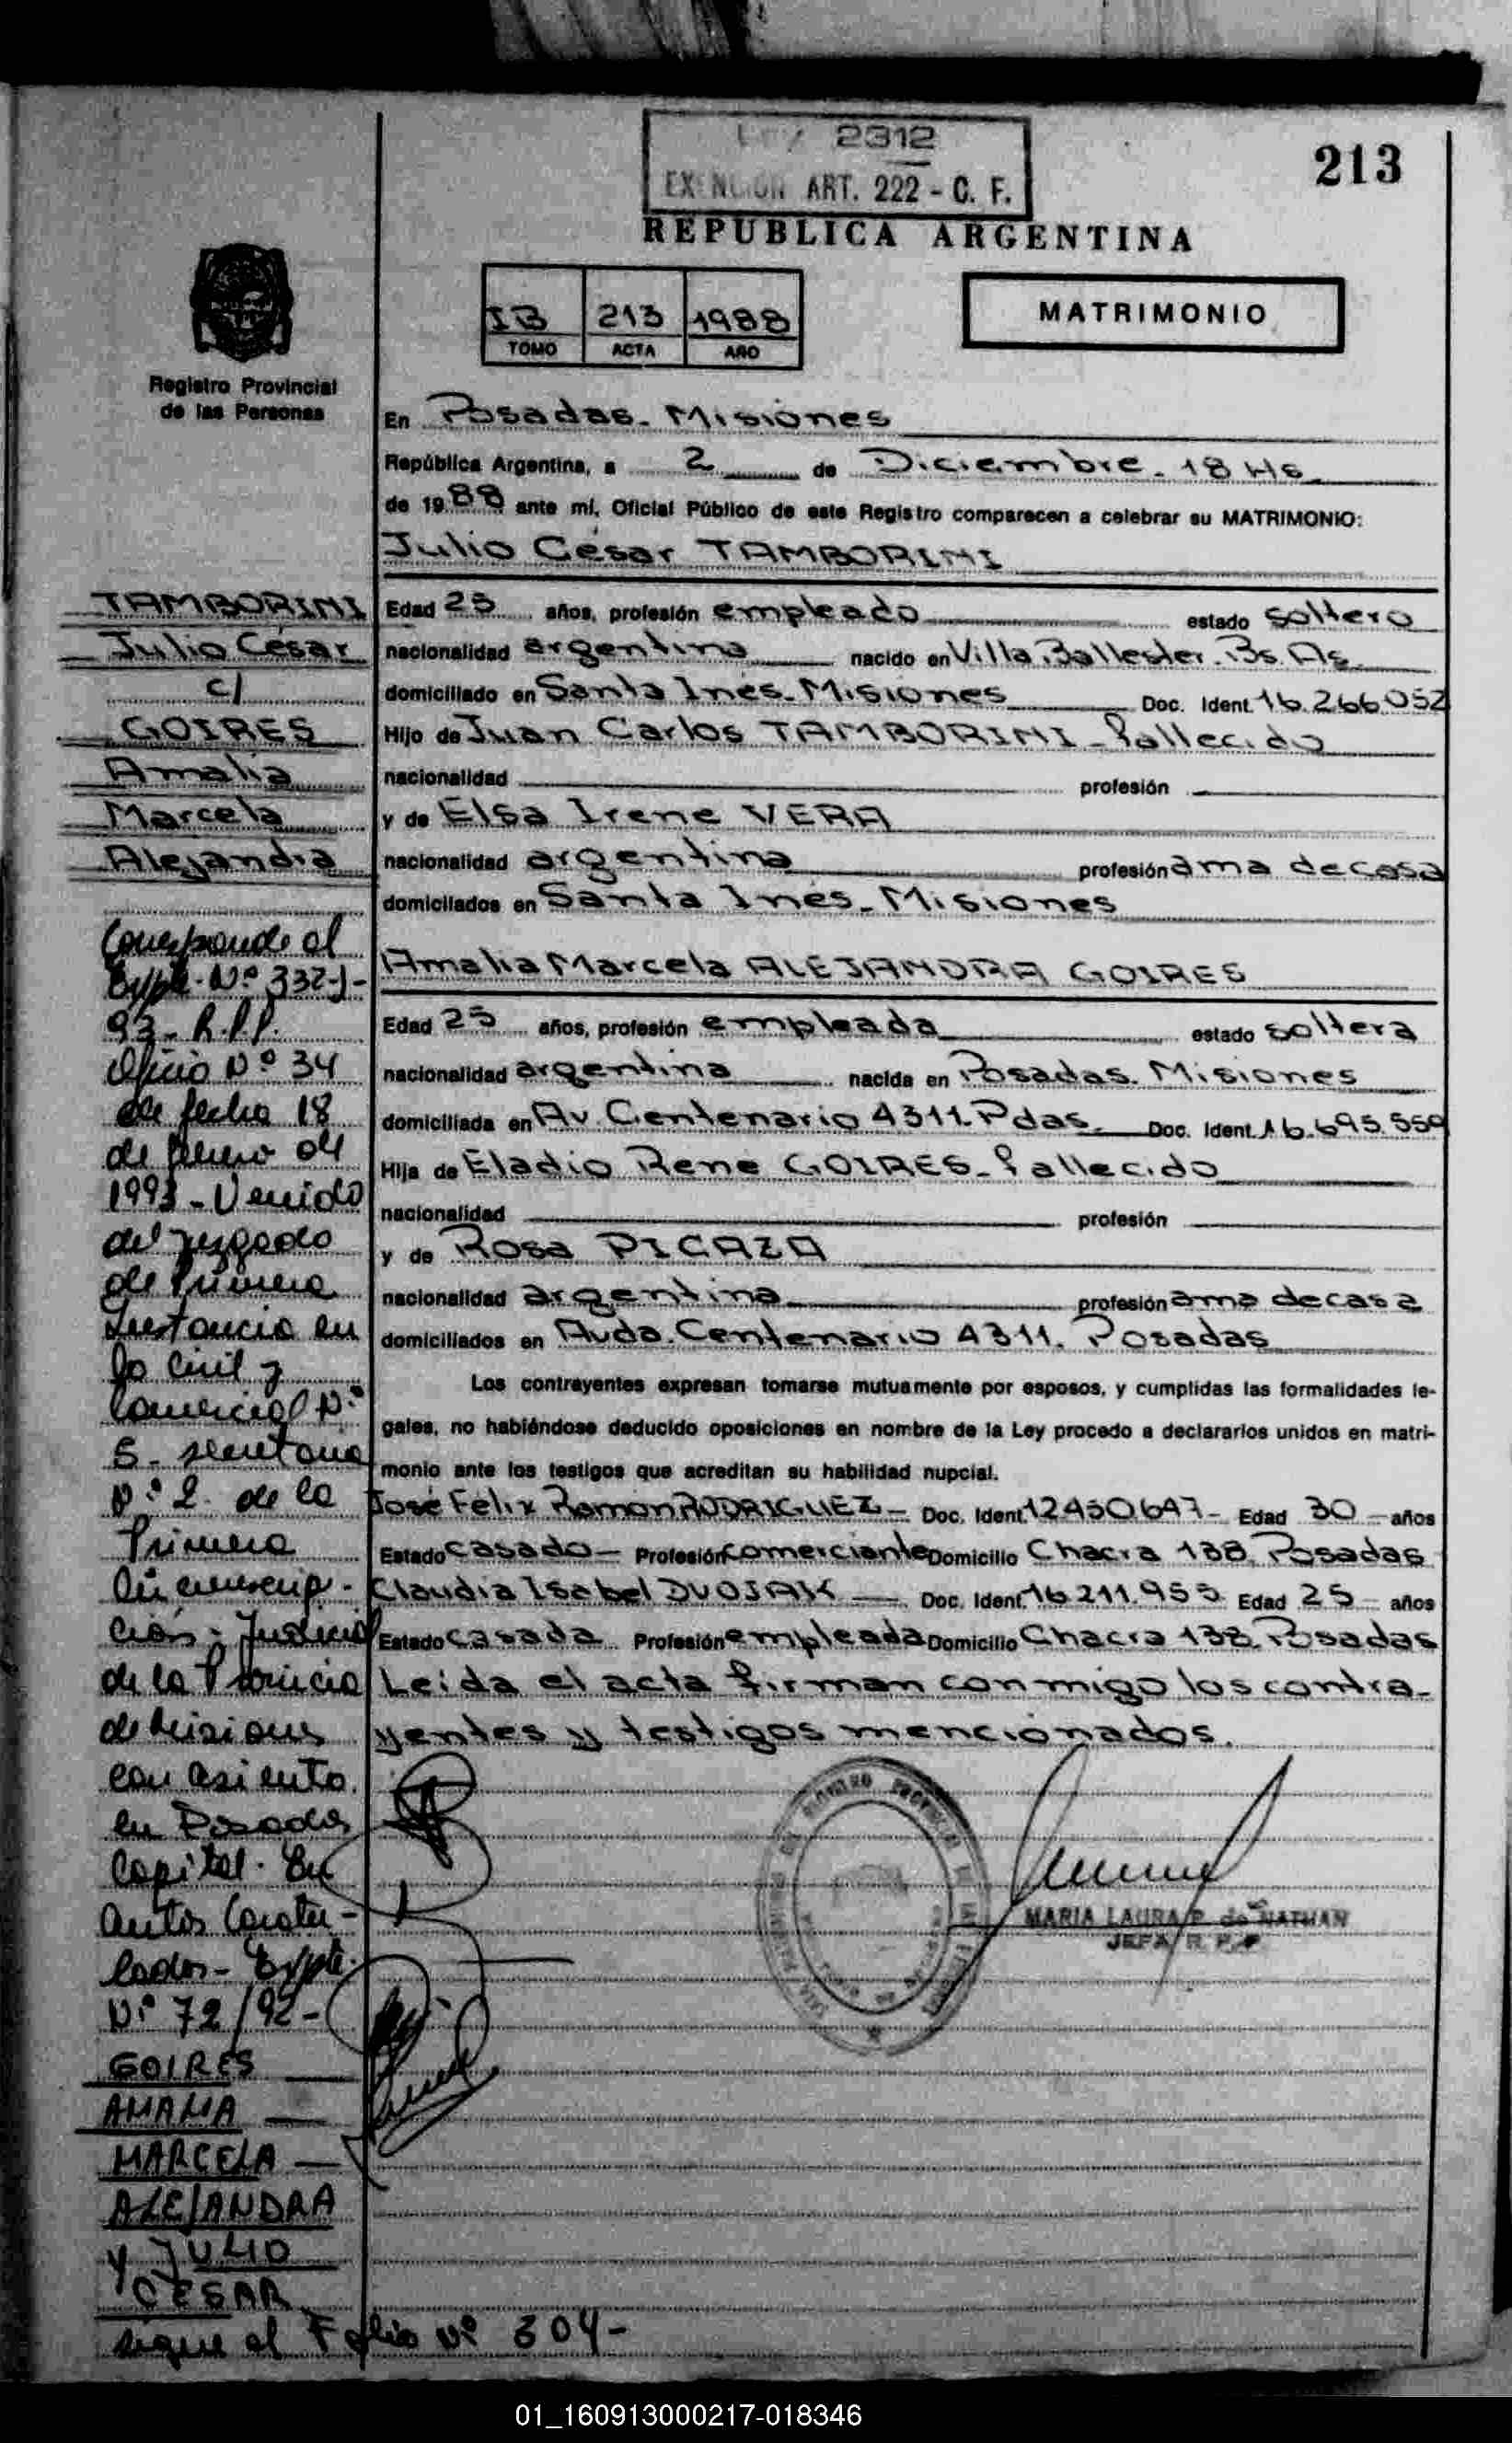 Ley 2312
EXENCION ART. 222 - C. F.
213
REPUBLICA ARGENTINA
IB 213 1988
TOMO ACTA AÑO
MATRIMONIO
Registro Provincial
de las Personas
En Posadas - Misiones
República Argentina, a 2 de Diciembre - 18 Hs
de 1988 ante mí, Oficial Público de este Registro comparecen a celebrar su MATRIMONIO:
Julio César TAMBORINI
Edad 25 años, profesión empleado estado soltero
nacionalidad argentina nacido en Villa Ballester. Bs. As.
domiciliado en Santa Inés - Misiones Doc. Ident. 16.266.052
Hijo de Juan Carlos TAMBORINI - fallecido
nacionalidad profesión
y de Elsa Irene VERA
nacionalidad argentina profesión ama de casa
domiciliados en Santa Inés - Misiones
Amalia Marcela ALEJANDRA GOIRES
Edad 25 años, profesión empleada estado soltera
nacionalidad argentina nacida en Posadas - Misiones
domiciliada en Av. Centenario 4311. Pdas. Doc. Ident. 16.695.550
Hija de Eladio Rene GOIRES - fallecido
nacionalidad profesión
y de Rosa PICAZA
nacionalidad argentina profesión ama de casa
domiciliados en Avda. Centenario 4311. Posadas
Los contrayentes expresan tomarse mutuamente por esposos, y cumplidas las formalidades le-
gales, no habiéndose deducido oposiciones en nombre de la Ley procedo a declararlos unidos en matri-
monio ante los testigos que acreditan su habilidad nupcial.
José Félix Ramon RODRIGUEZ - Doc. Ident. 12450.647 - Edad 30 - años
Estado casado - Profesión comerciante Domicilio Chacra 138. Posadas
Claudia Isabel DVOJAK - Doc. Ident. 16.211.955 Edad 25 - años
Estado casada Profesión empleada Domicilio Chacra 138. Posadas
Leida el acta firman conmigo los contra-
yentes y testigos mencionados.
MARIA LAURA P. de NATHAN
JEFA R. P. P.
TAMBORINI
Julio César
c/
GOIRES
Amalia
Marcela
Alejandra
Corresponde al
Expte. Nº 332-J-
93 - R.P.P.
Oficio Nº 34
de fecha 18
de febrero de
1993 - Venido
del Juzgado
de Primera
Instancia en
lo Civil y
Comercial Nº
5 - secretaria
Nº 2 - de la
Primera
Circunscrip-
ción - Judicial
de la Provincia
de Misiones
con asiento
en Posadas
Capital. En
autos Caratu-
lados - Expte.
Nº 72/92 -
GOIRES
AMALIA
MARCELA
ALEJANDRA
y JULIO
CESAR
sigue al Folio Nº 304-
01_160913000217-018346